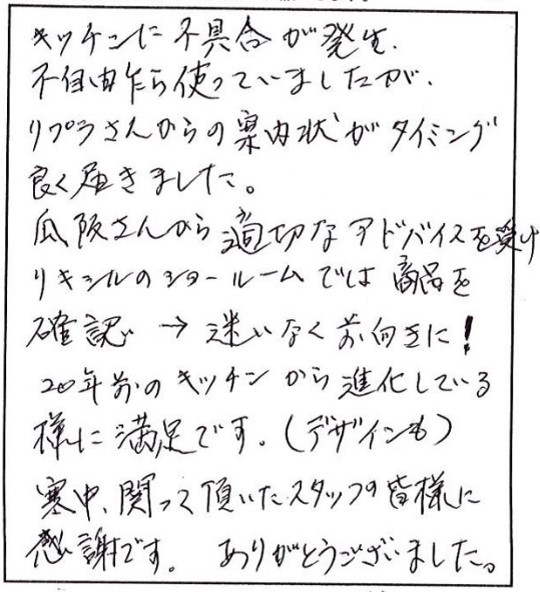 キッチンに不具合が発生、
不自由乍ら使っていましたが、
リプラさんからの案内状がタイミング
良く届きました。
瓜阪さんから適切なアドバイスを受け
リキシルのショールームでは商品を
確認 → 迷いなく前向きに!
20年前のキッチンから進化している
様に満足です。(デザインも)
寒中、関って頂いたスタッフの皆様に
感謝です。 ありがとうございました。